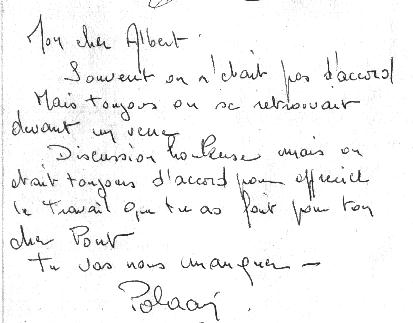 Mon cher Albert.
Souvent on n'était pas d'accord
Mais toujours on se retrouvait
devant un verre
Discussion houleuse mais on
était toujours d'accord pour apprécier
le travail que tu as fait pour ton
cher Pont
Tu vas nous manquer –